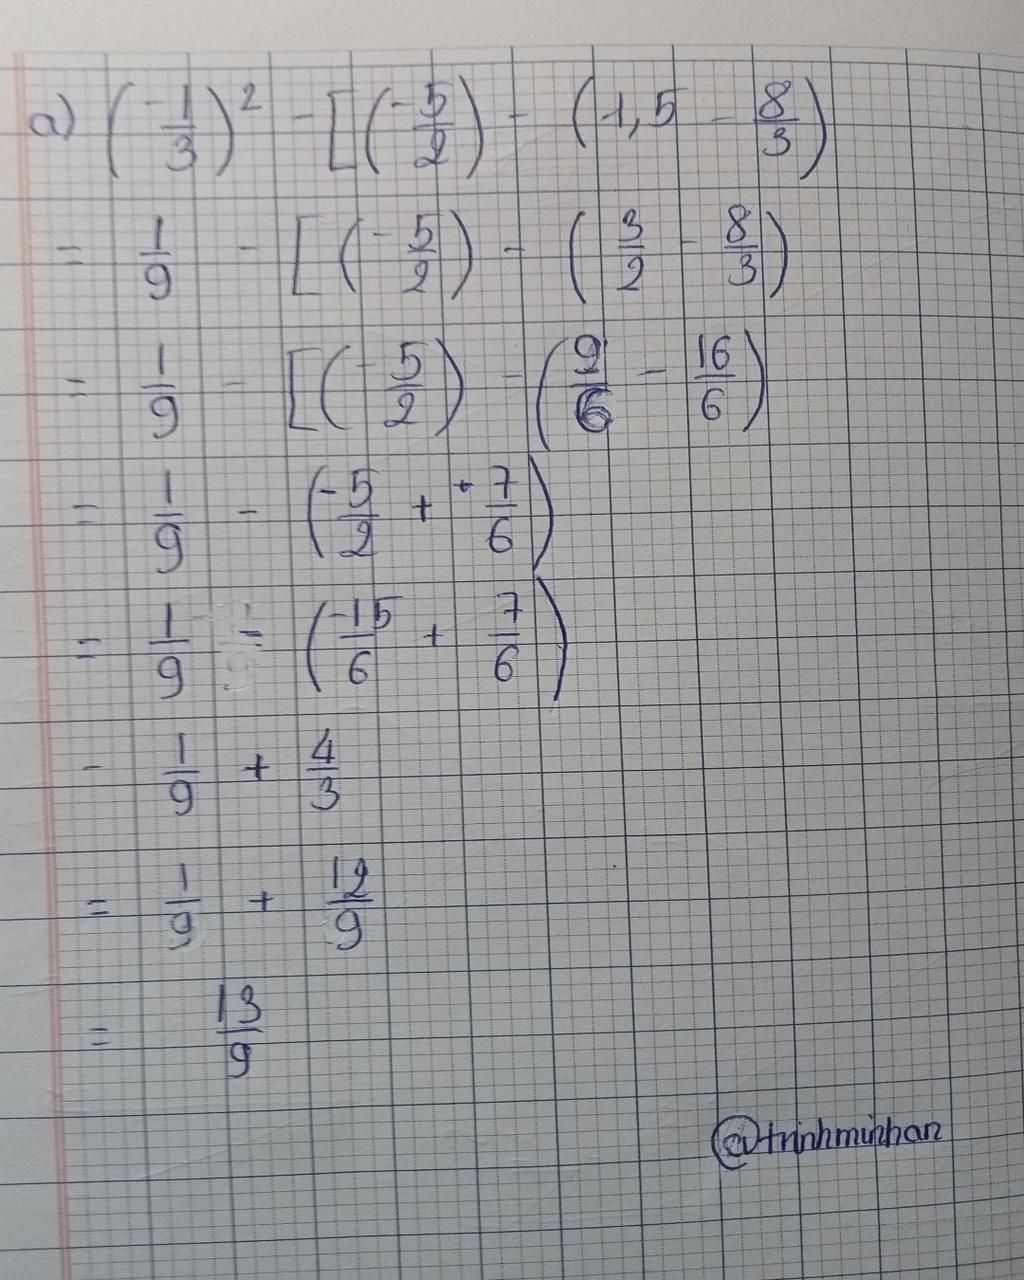 a) (-1/3)² - [(-5/2) - (1,5 - 8/3)
= 1/9 - [(-5/2) - (3/2 - 8/3)
= 1/9 - [(-5/2) - (9/6 - 16/6)
= 1/9 - (-5/2 + + 7/6)
= 1/9 - (-15/6 + 7/6)
- 1/9 + 4/3
= 1/9 + 12/9
= 13/9